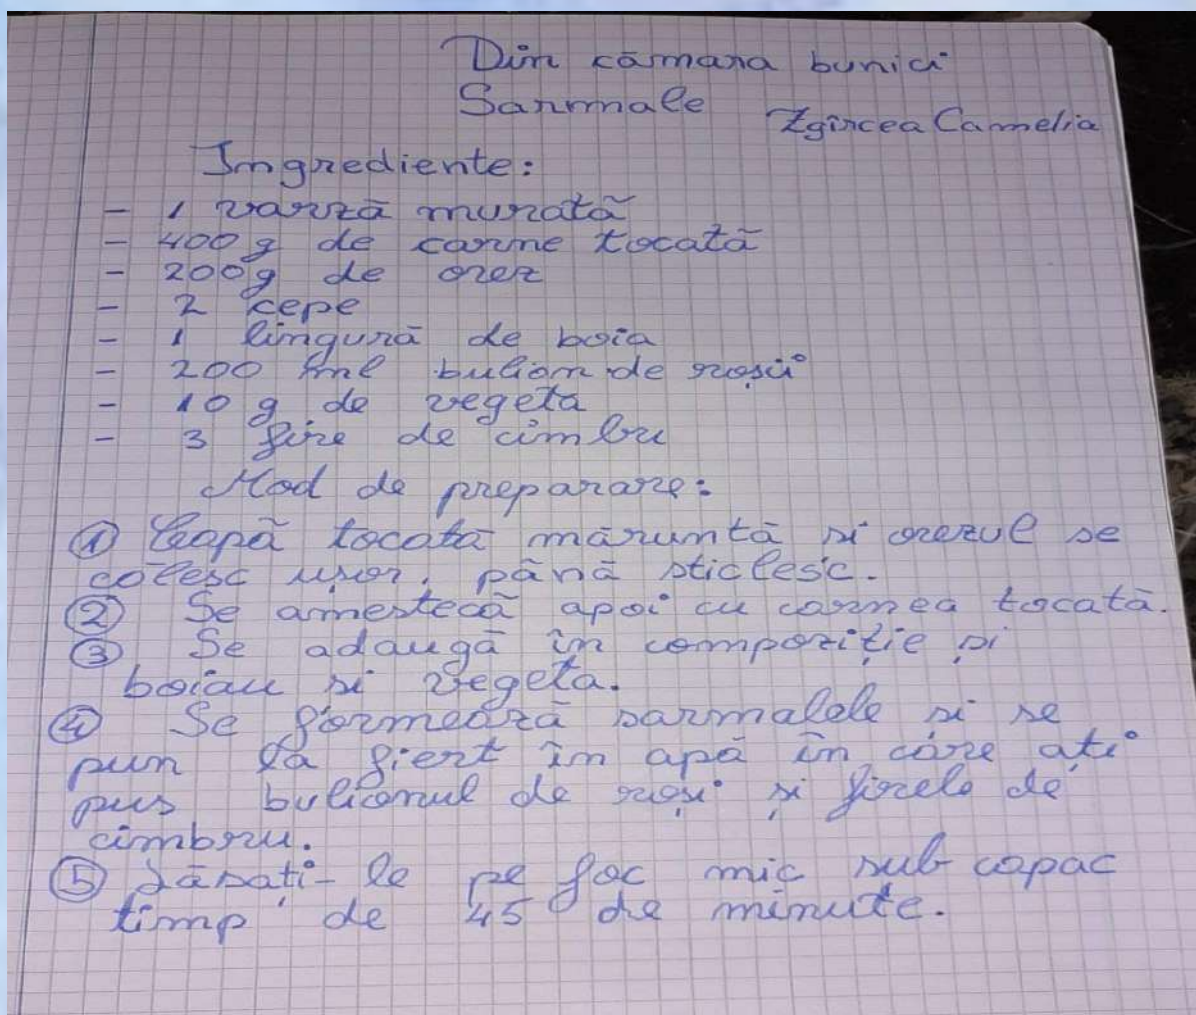 Din cămara bunici
Sarmale
Zgîrcea Camelia
Ingrediente:
- 1 varză murată
- 400 g de carne tocată
- 200g de orez
- 2 cepe
- 1 lingură de boia
- 200 ml bulion de roșii
- 10 g de vegeta
- 3 fire de cimbru
Mod de preparare:
① Ceapă tocată măruntă si orezul se
călesc ușor, până sticlesc.
② Se amestecă apoi cu carnea tocată.
③ Se adaugă în compoziție și
boiau si vegeta.
④ Se formează sarmalele si se
pun la fiert în apă în care ați
pus bulionul de roși și firele de
cimbru.
⑤ Lăsați-le pe foc mic sub capac
timp de 45 de minute.